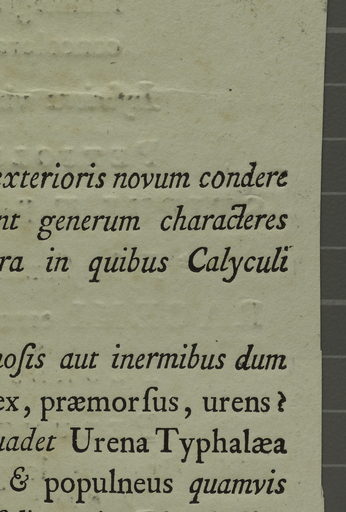 exterioris novum condere
nt generum characteres
ra in quibus Calyculi
noſis aut inermibus dum
ex, præmorſus, urens?
uadet Urena Typhalæa
& populneus quamvis